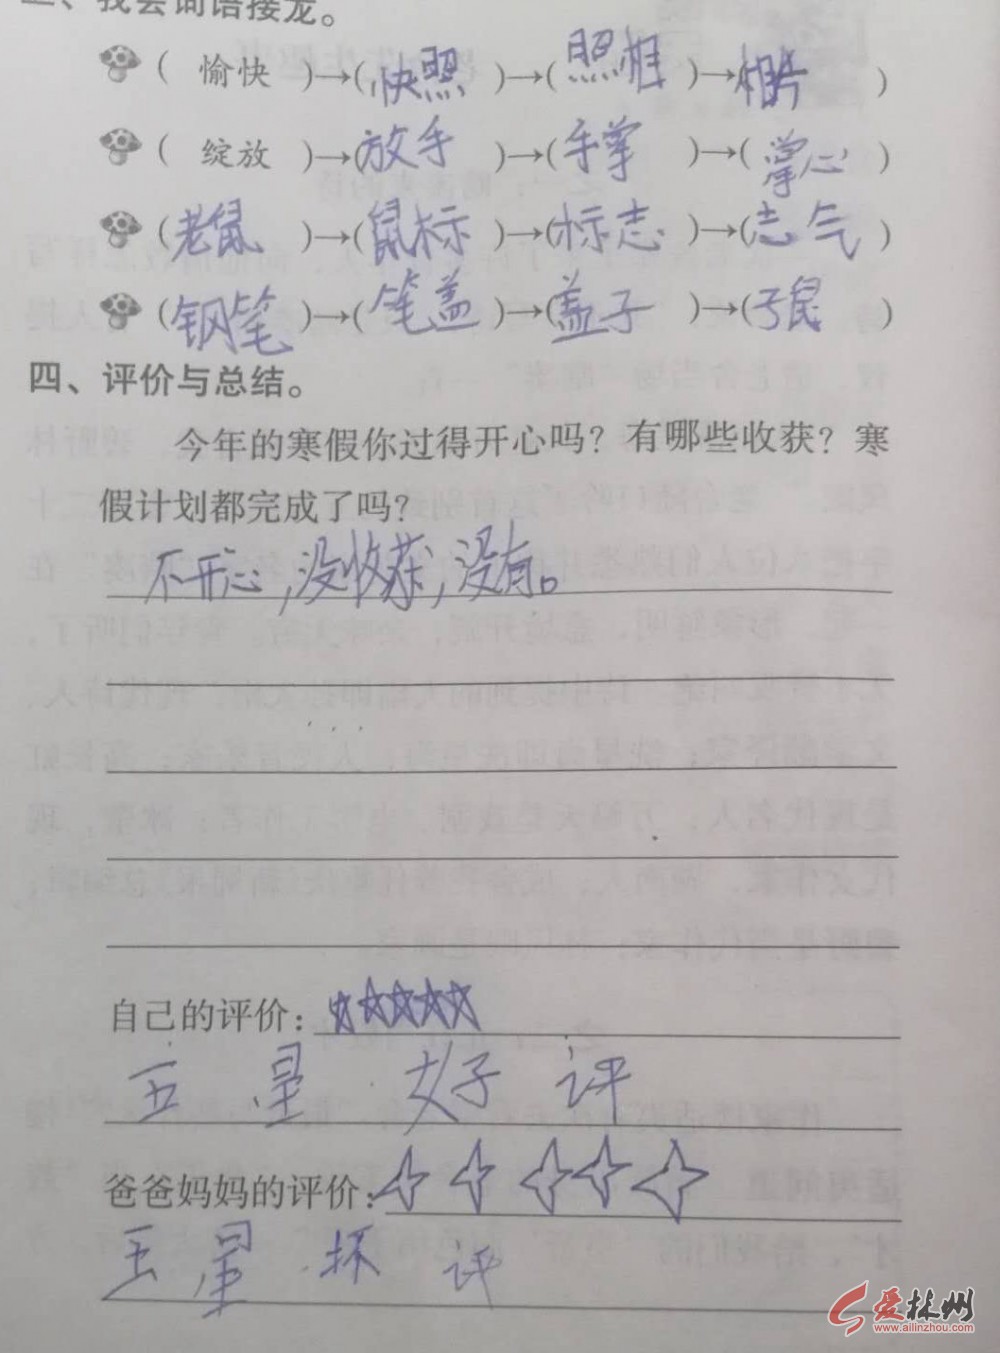 三、我会词语接龙。
( 愉快 )→( 快照 )→( 照相 )→( 相片 )
( 绽放 )→( 放手 )→( 手掌 )→( 掌心 )
( 老鼠 )→( 鼠标 )→( 标志 )→( 志气 )
( 钢笔 )→( 笔盖 )→( 盖子 )→( 子鼠 )
四、评价与总结。
今年的寒假你过得开心吗？有哪些收获？寒
假计划都完成了吗？
不开心，没收获，没有。
自己的评价：☆☆☆☆☆
五星好评
爸爸妈妈的评价：
五星坏评
爱林州
www.ailinzhou.com